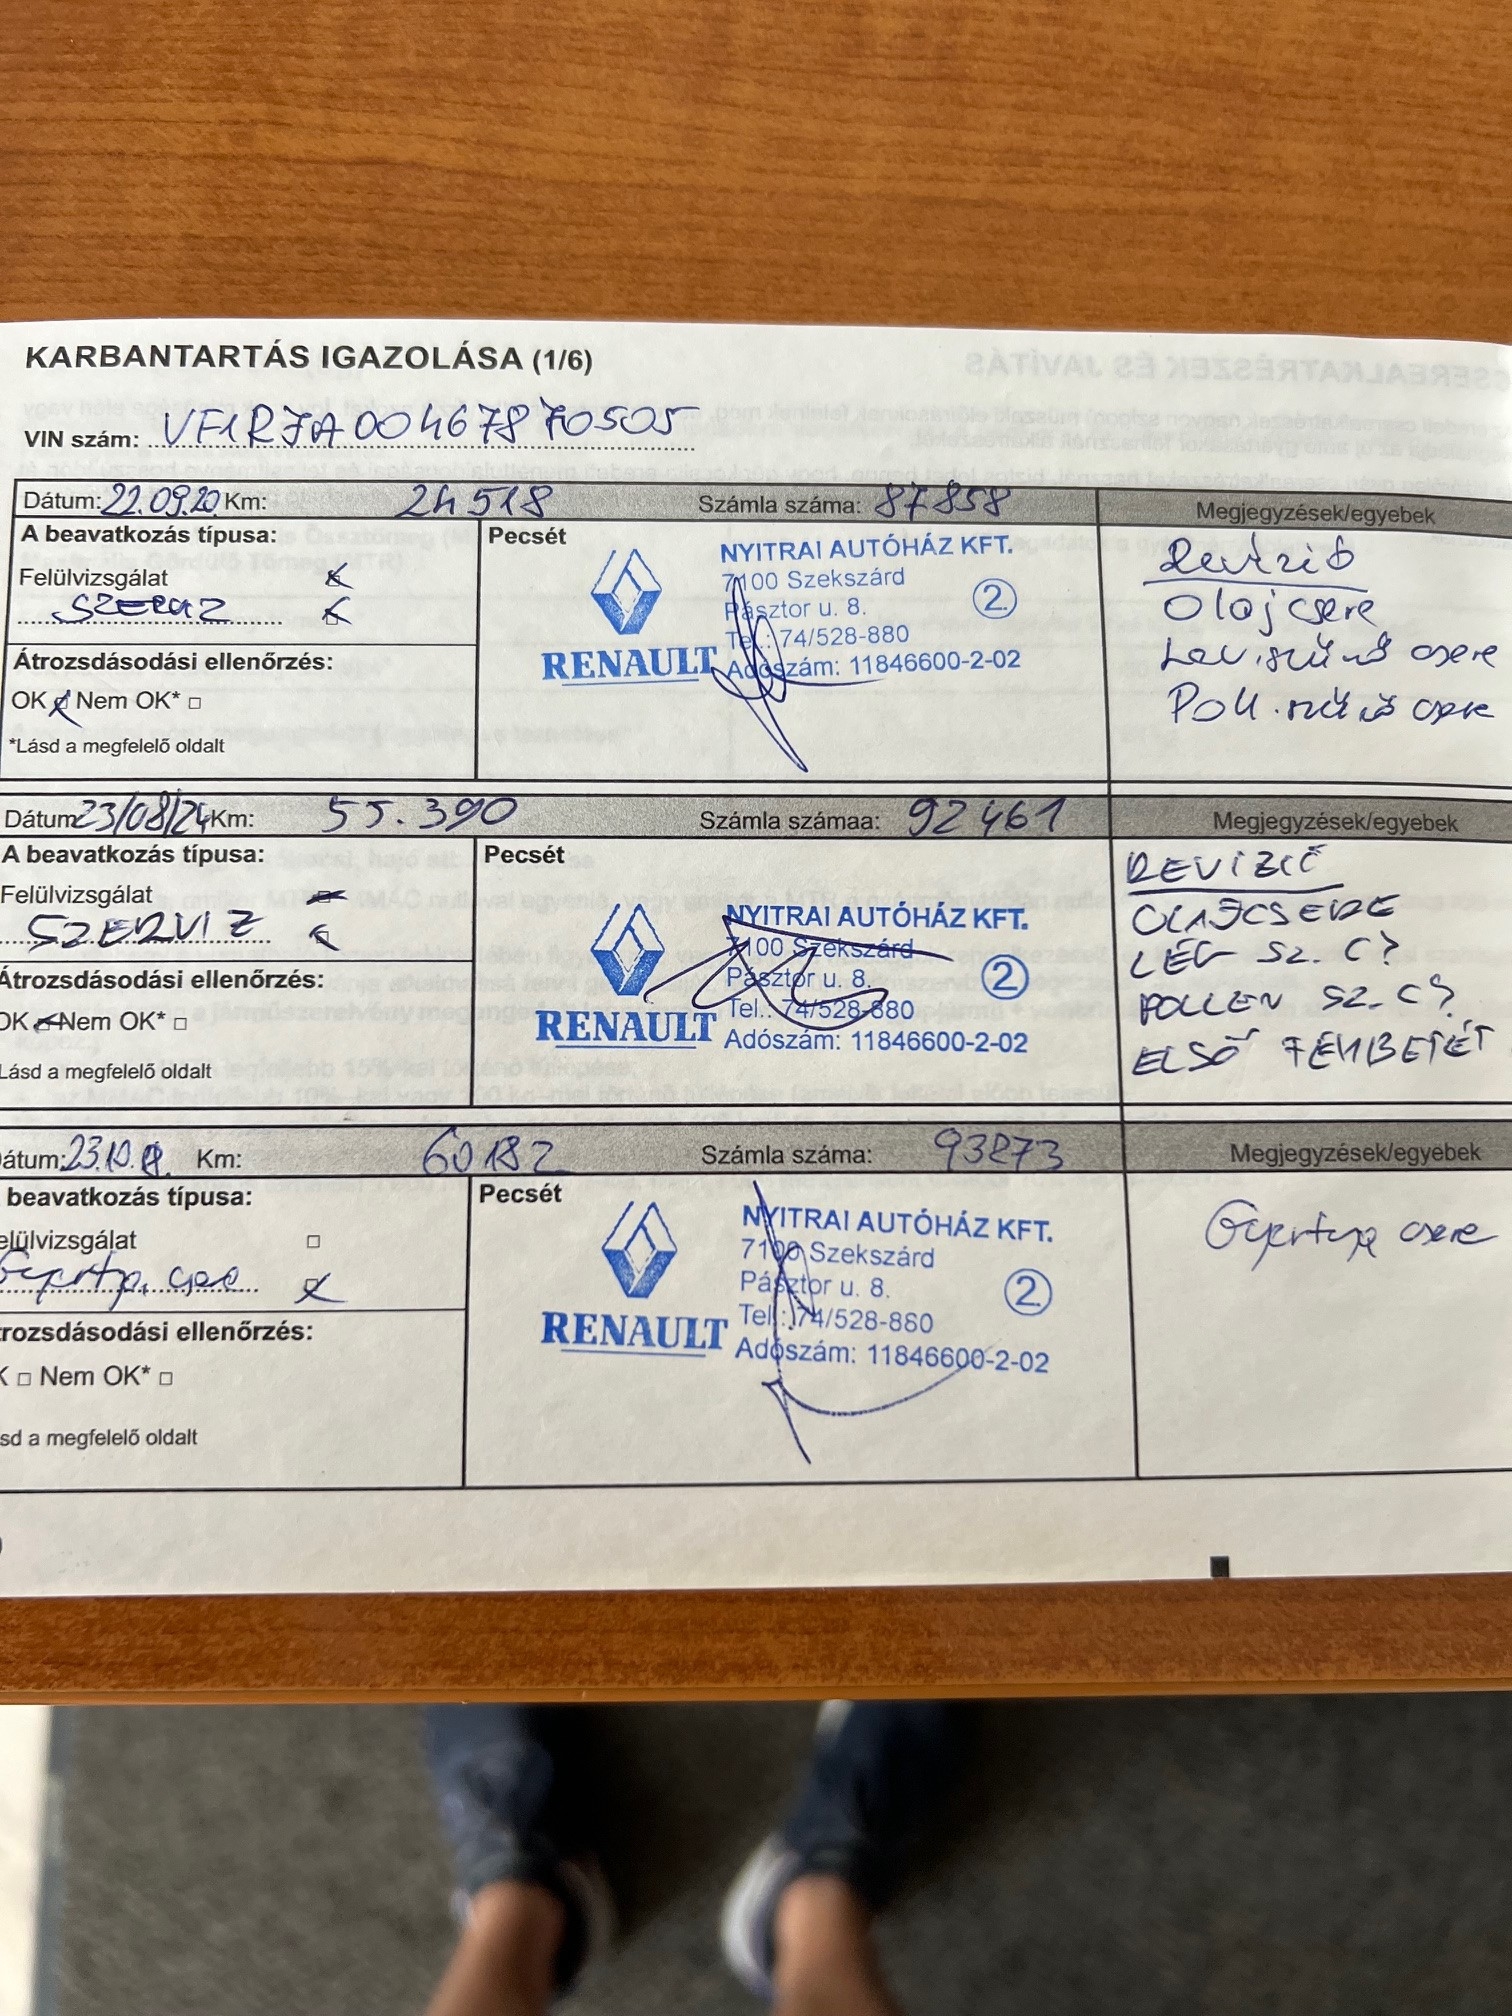 KARBANTARTÁS IGAZOLÁSA (1/6)
VIN szám: VF1RJA00467870505
Dátum: 22.09.20. Km: 24518 Számla száma: 87858 Megjegyzések/egyebek
A beavatkozás típusa:
Felülvizsgálat
SZERVIZ
Átrozsdásodási ellenőrzés:
OK Nem OK*
*Lásd a megfelelő oldalt
Pecsét
RENAULT
NYITRAI AUTÓHÁZ KFT.
7100 Szekszárd
Pásztor u. 8.
Tel.: 74/528-880
Adószám: 11846600-2-02
2
Revízió
Olajcsere
Lev.szűrő csere
Poll.szűrő csere
Dátum 23/08/24 Km: 55.390 Számla számaa: 92461 Megjegyzések/egyebek
A beavatkozás típusa:
Felülvizsgálat
SZERVIZ
Átrozsdásodási ellenőrzés:
OK Nem OK*
Lásd a megfelelő oldalt
Pecsét
RENAULT
NYITRAI AUTÓHÁZ KFT.
7100 Szekszárd
Pásztor u. 8.
Tel.: 74/528-880
Adószám: 11846600-2-02
2
REVÍZIÓ
OLAJCSERE
LÉG SZ. C?
POLLEN SZ. C?
ELSŐ FÉKBETÉT
átum: 23.10. Km: 60182 Számla száma: 93873 Megjegyzések/egyebek
beavatkozás típusa:
elülvizsgálat
Gyertya csere
rozsdásodási ellenőrzés:
K Nem OK*
sd a megfelelő oldalt
Pecsét
RENAULT
NYITRAI AUTÓHÁZ KFT.
7100 Szekszárd
Pásztor u. 8.
Tel.: 74/528-880
Adószám: 11846600-2-02
2
Gyertya csere